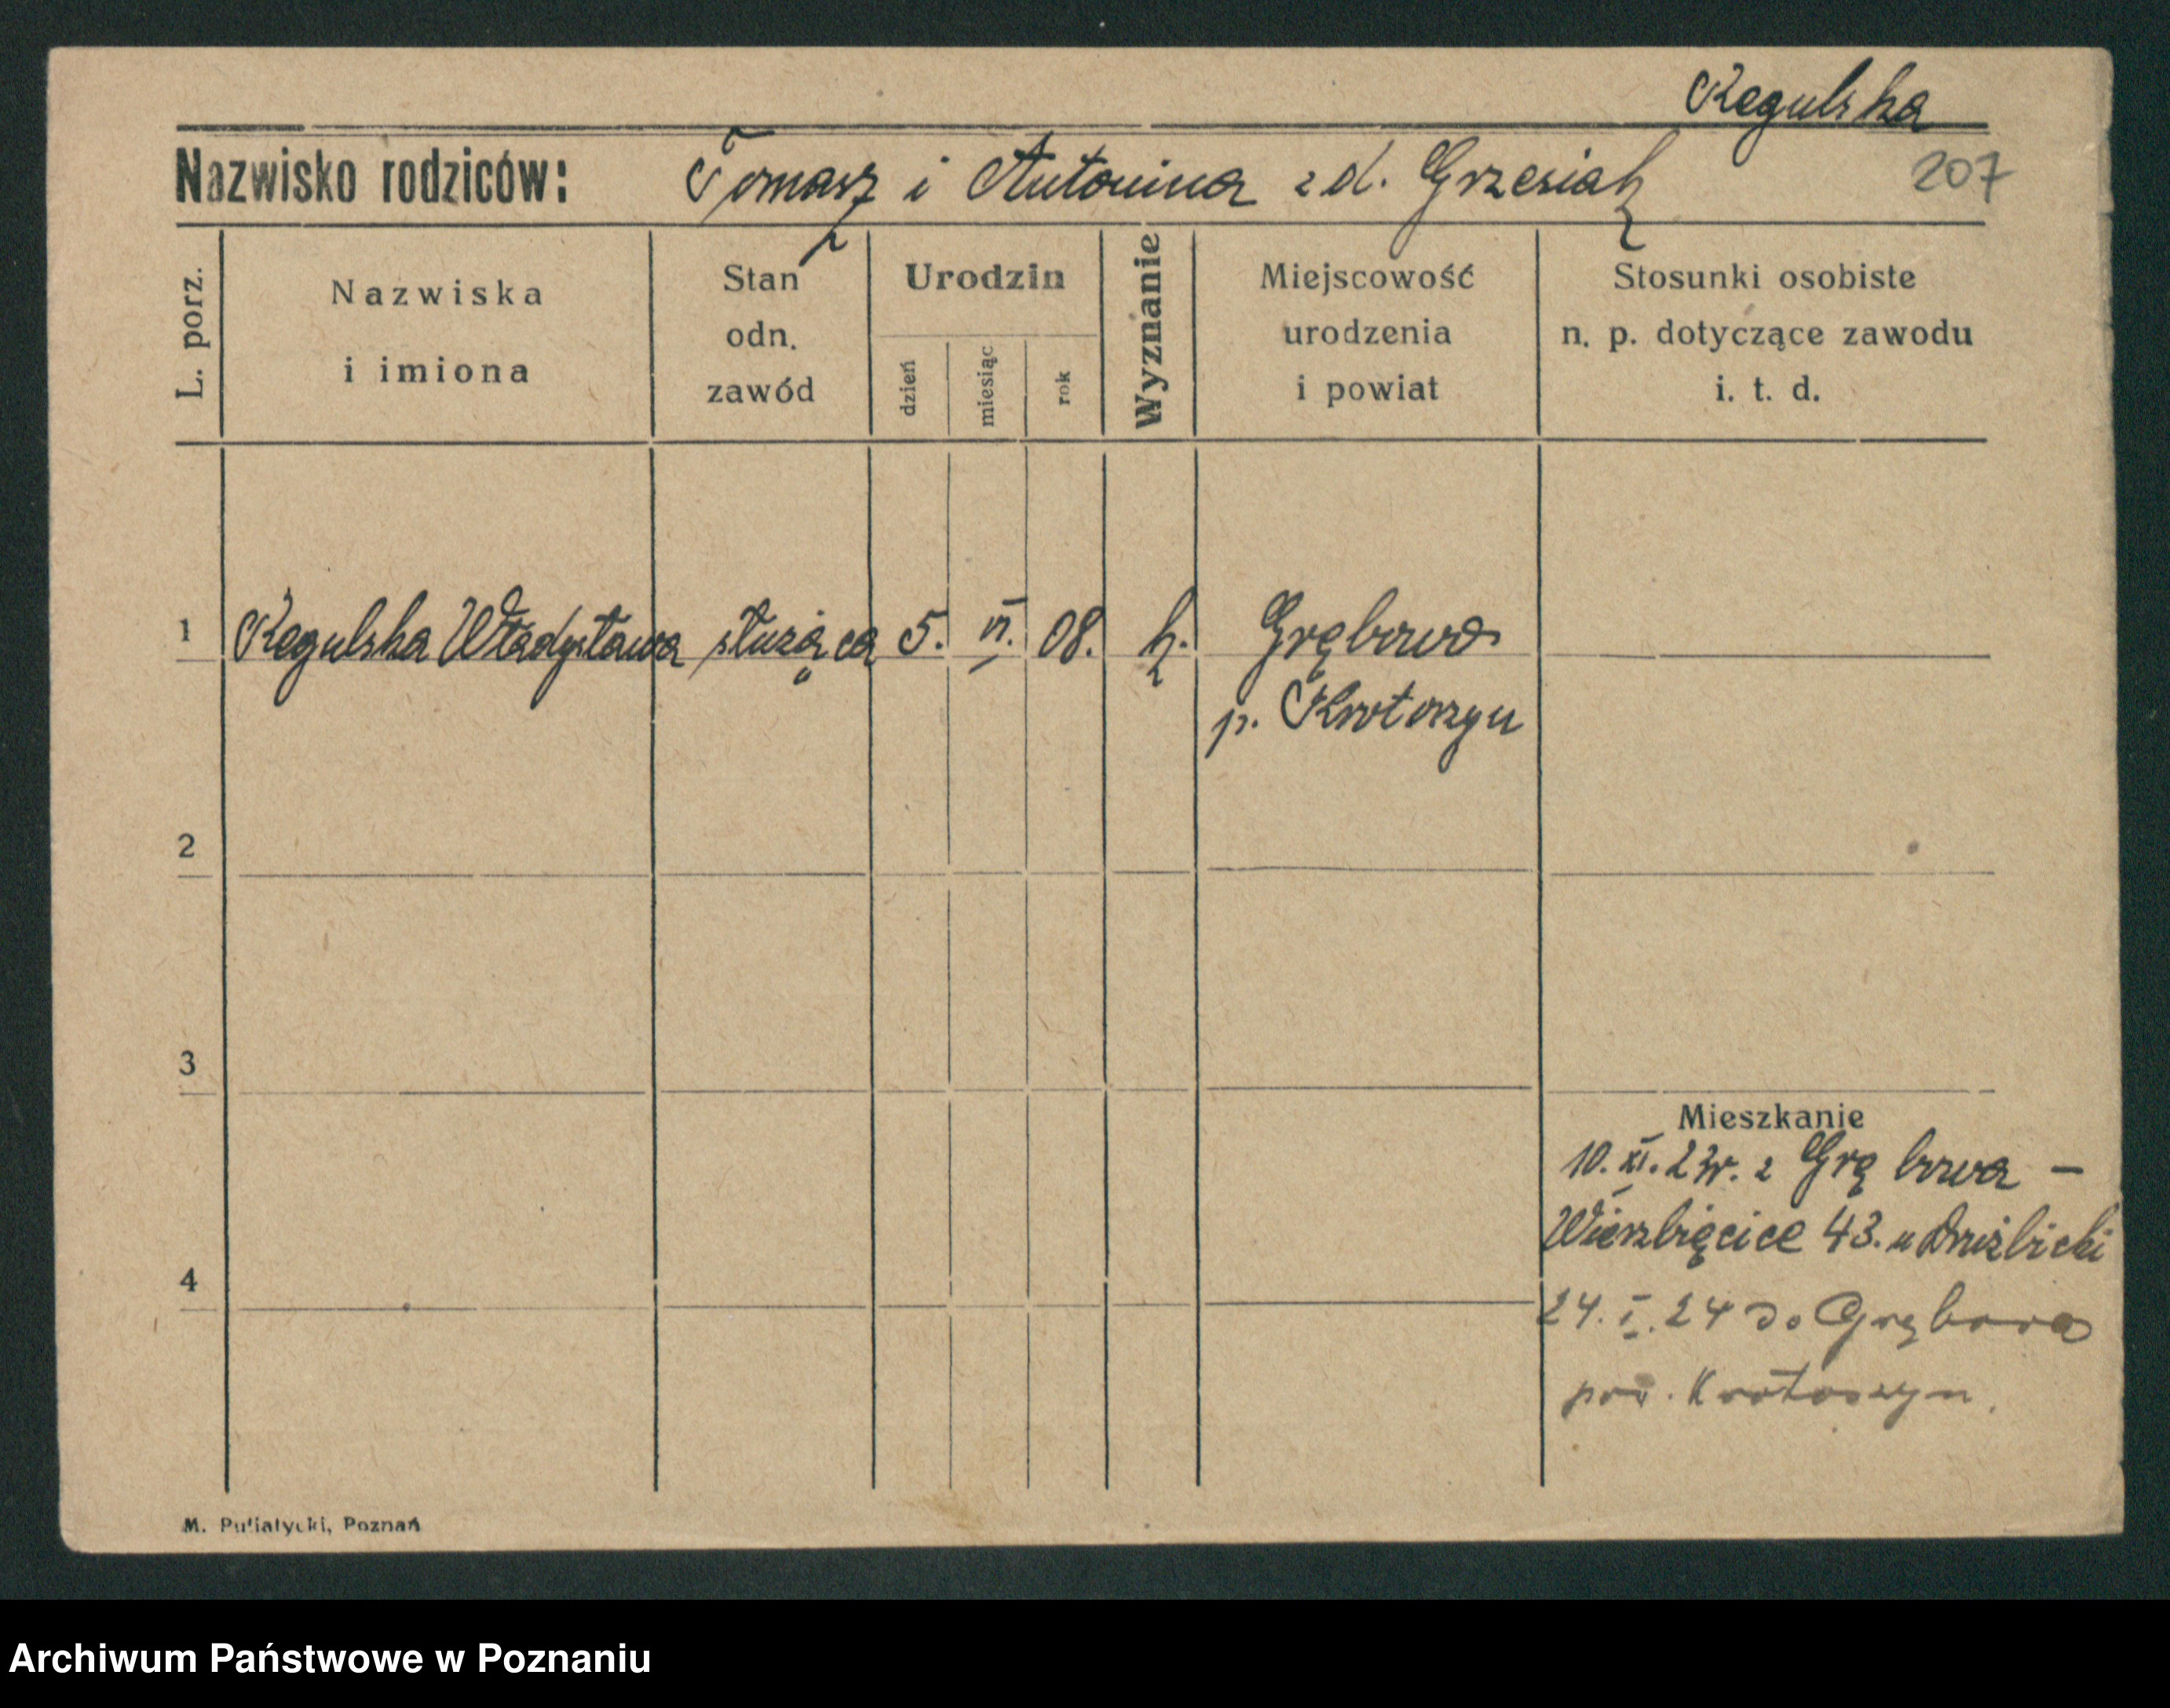 Regulska
Nazwisko rodziców: Tomasz i Antonina z d. Grzesiak 207
L. porz.
Nazwiska
i imiona
Stan
odn.
zawód
Urodzin
dzień
miesiąc
rok
Wyznanie
Miejscowość
urodzenia
i powiat
Stosunki osobiste
n. p. dotyczące zawodu
i. t. d.
1 Regulska Władysława służąca 5. VI. 08. k. Grębowo
p. Krotoszyn
2
3
Mieszkanie
10. XI. 23r. z Grębowa –
Wierzbięcice 43. u Drużbicki
4
24. I. 24 do Grębowa
pow. Krotoszyn.
M. Putiatycki, Poznań
Archiwum Państwowe w Poznaniu